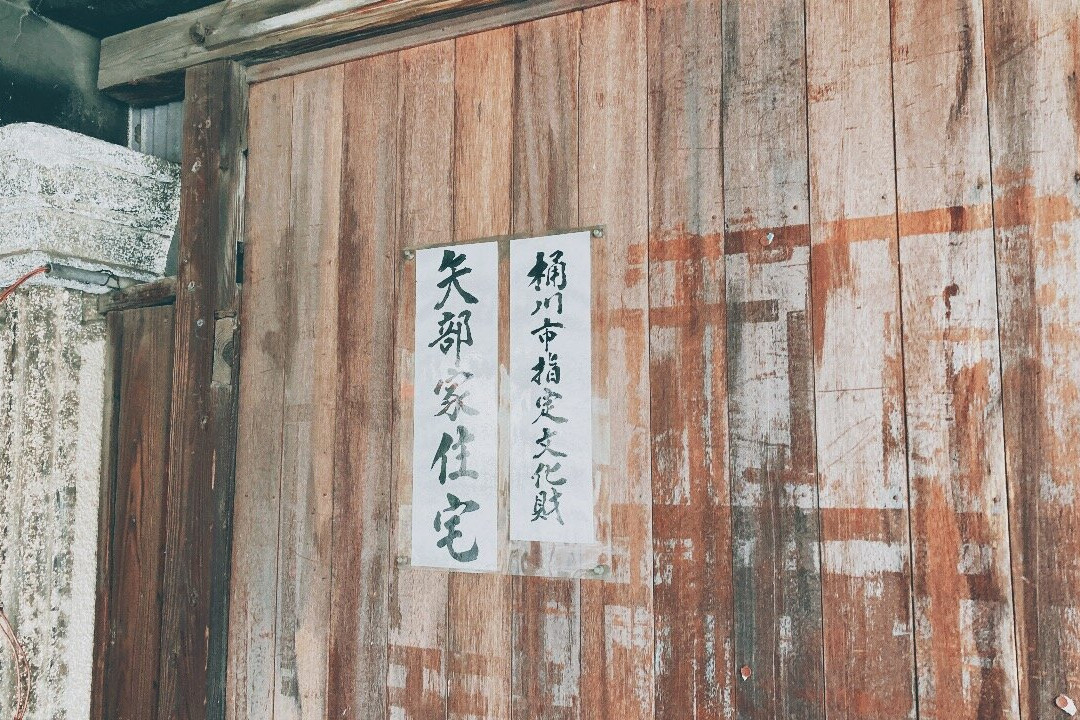 桶川市指定文化財
矢部家住宅